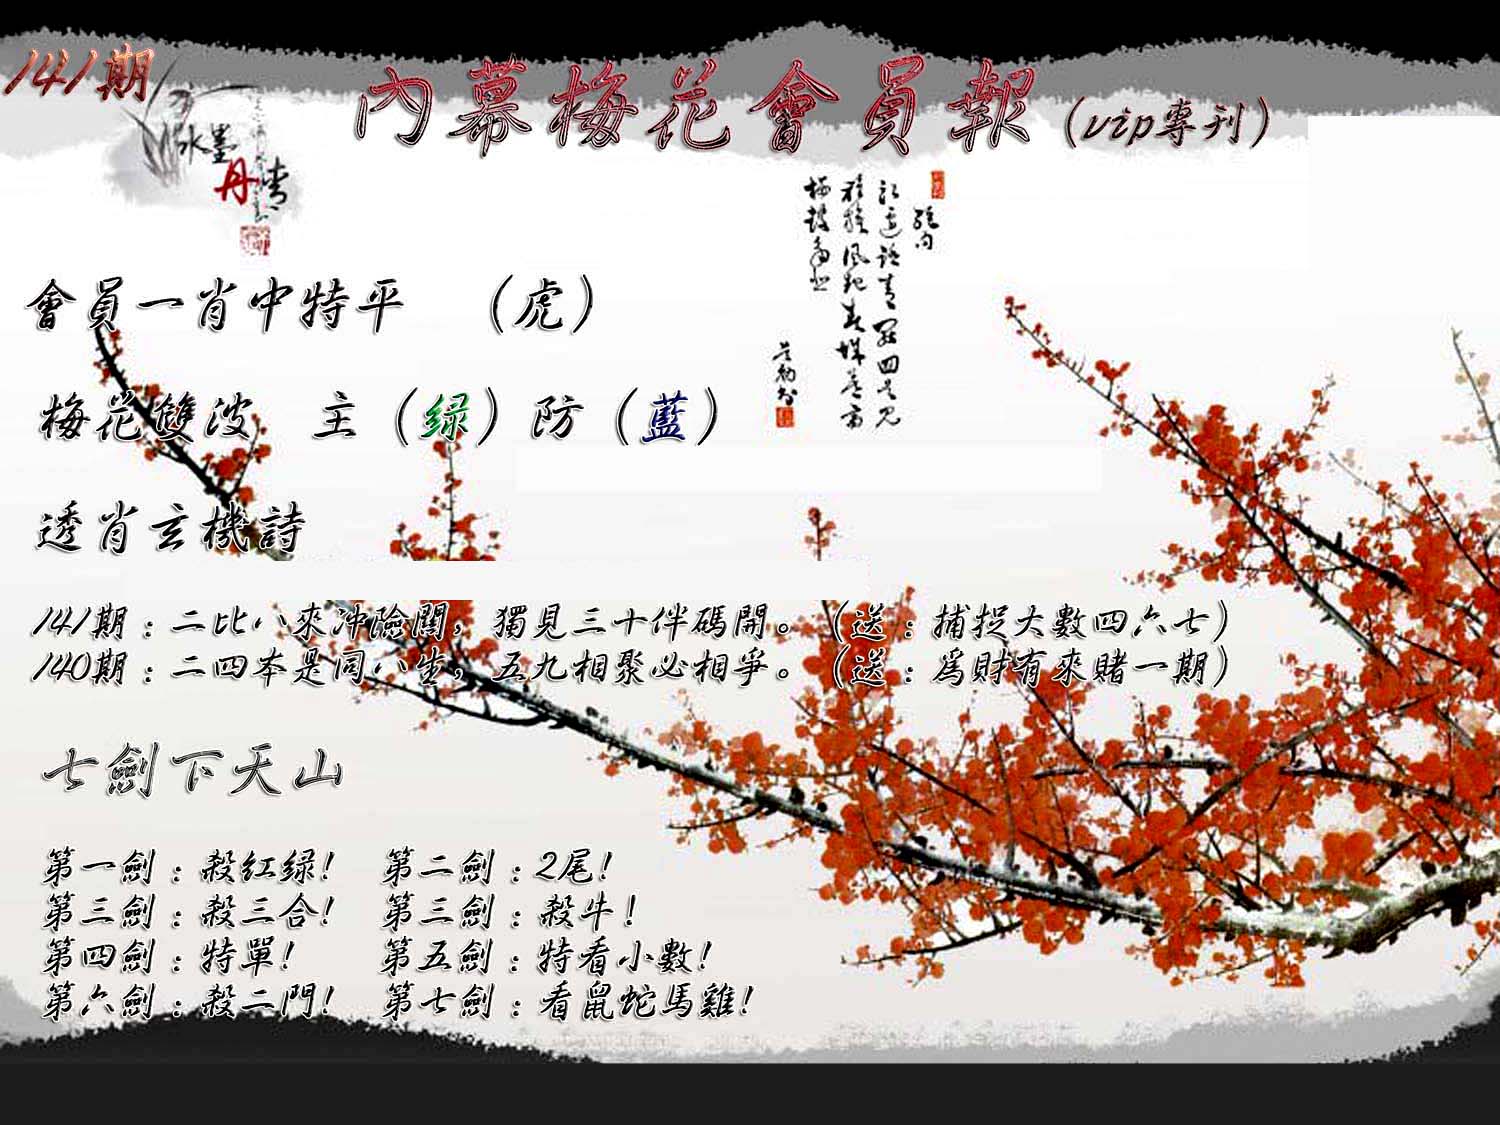 141期
內幕梅花會員報（vip專刊）
水墨
丹青
會員一肖中特平　（虎）
梅花雙波　主（绿）防（藍）
透肖玄機詩
141期：二比八來沖險關，獨見三十伴碼開。（送：捕捉大數四六七）
140期：二四本是同八生，五九相聚必相爭。（送：為財有來賭一期）
七劍下天山
第一劍：殺紅绿！　第二劍：2尾！
第三劍：殺三合！　第三劍：殺牛！
第四劍：特單！　第五劍：特看小數！
第六劍：殺二門！　第七劍：看鼠蛇馬雞！